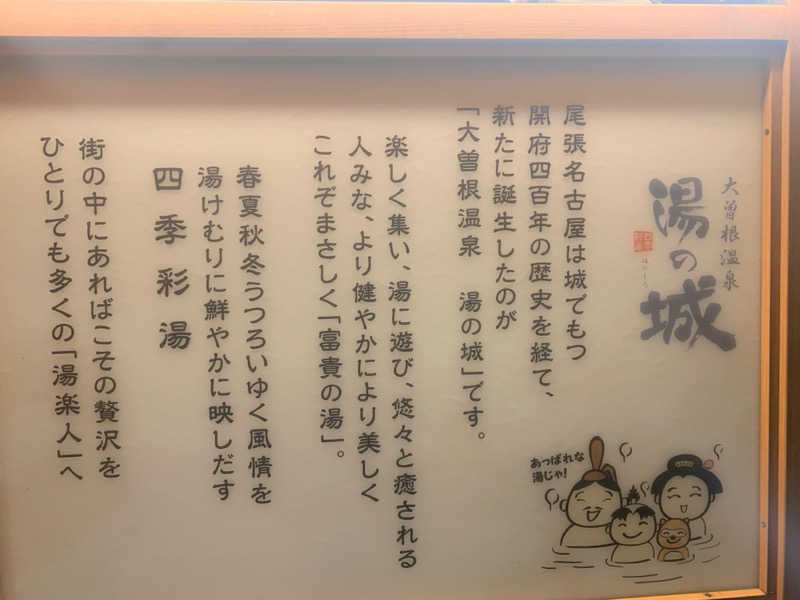 大曽根温泉
湯の城
ゆのしろ
尾張名古屋は城でもつ
開府四百年の歴史を経て、
新たに誕生したのが
「大曽根温泉 湯の城」です。
楽しく集い、湯に遊び、悠々と癒される
人みな、より健やかにより美しく
これぞまさしく「富貴の湯」。
春夏秋冬うつろいゆく風情を
湯けむりに鮮やかに映しだす
四季彩湯
街の中にあればこその贅沢を
ひとりでも多くの「湯楽人」へ
あっぱれな
湯じゃ!